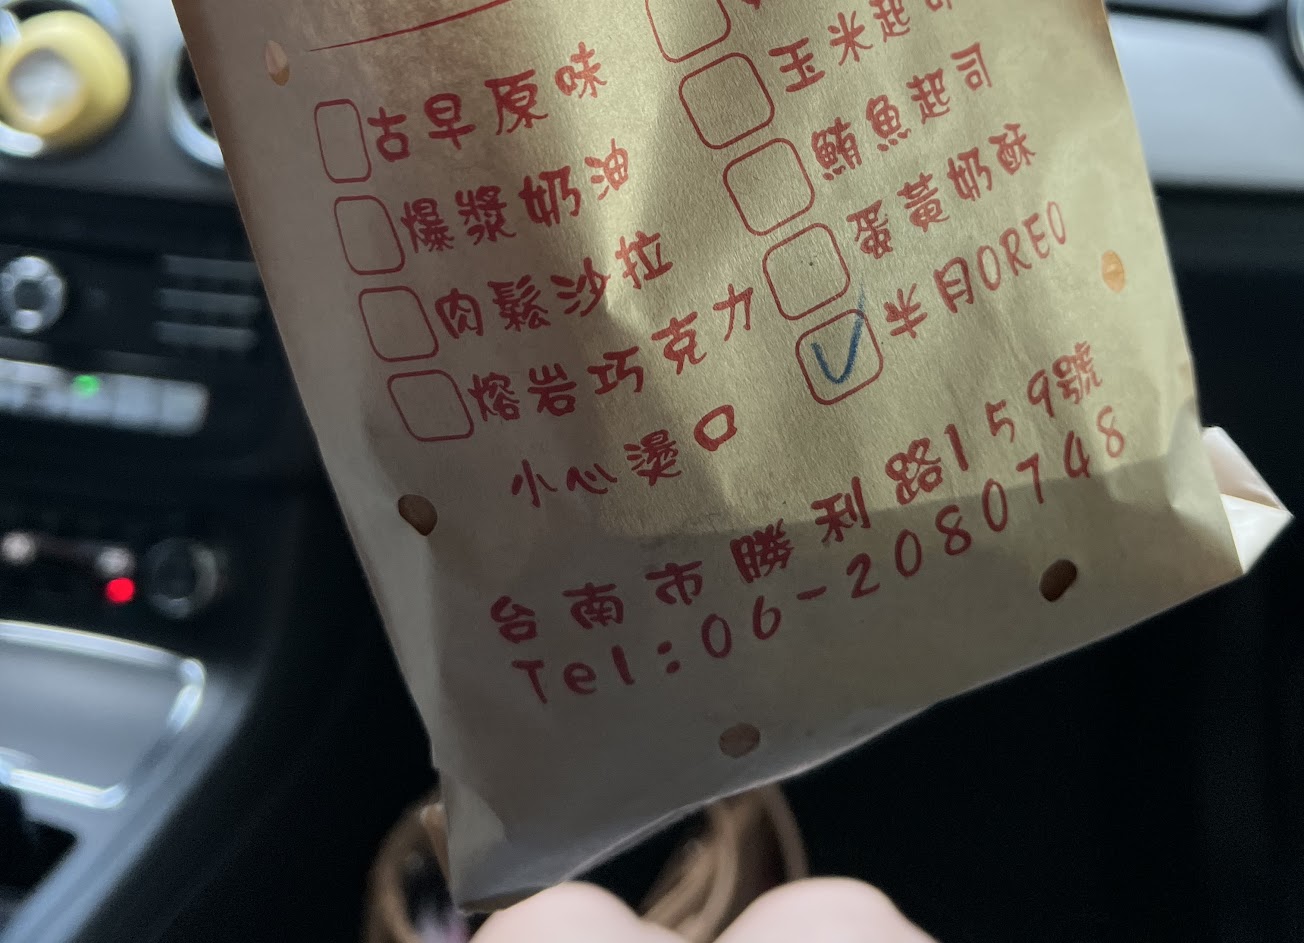 古早原味
爆漿奶油
肉鬆沙拉
熔岩巧克力
玉米起司
鮪魚起司
蛋黃奶酥
半月OREO
小心燙口
台南市勝利路159號
Tel:06-2080748